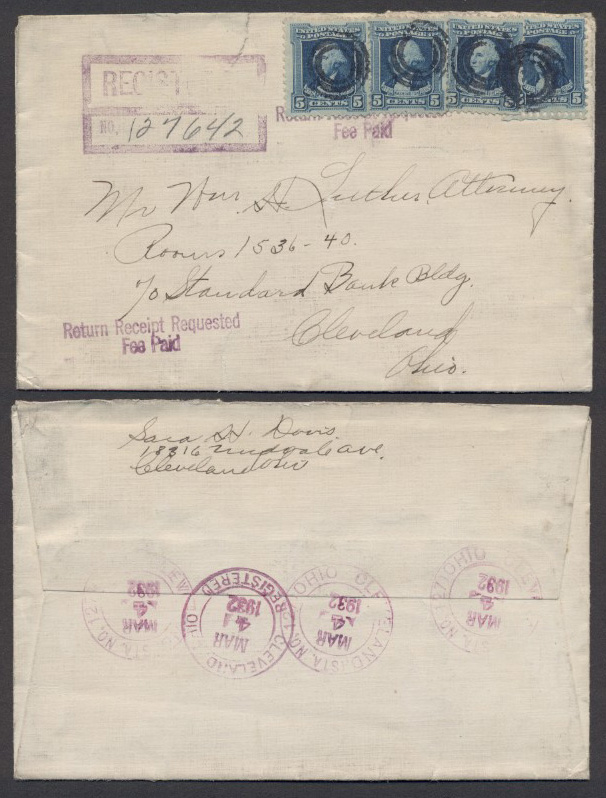 UNITED STATES POSTAGE UNITED STATES POSTAGE UNITED STATES POSTAGE UNITED STATES POSTAGE
5 CENTS 5 5 CENTS 5 5 CENTS 5 CENTS 5
REGISTERED
NO. 127642
Return Receipt Requested
Fee Paid
Mr Wm. H. Luther, Attorney.
Rooms 1536-40.
℅ Standard Bank Bldg.
Cleveland
Ohio.
Return Receipt Requested
Fee Paid
Sara H. Davis
Ave.
Cleveland Ohio
CLEVELAND STA. NO. 127 OHIO
MAR 4 1932
CLEVELAND, OHIO REGISTERED
MAR 4 1932
CLEVELAND STA. NO. 127 OHIO
MAR 4 1932
CLEVELAND STA. NO. 127 OHIO
MAR 4 1932